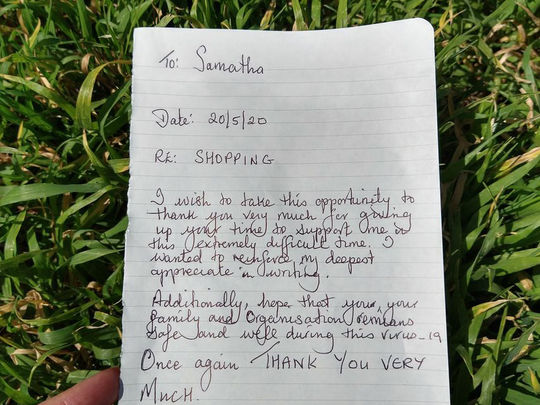 To: Samatha
Date: 20/5/20
RE: SHOPPING
I wish to take this opportunity to
thank you very much for giving
up your time to support me in
this extremely difficult time. I
wanted to reinforce my deepest
appreciate in writing.
Additionally, hope that your, your
family and Organisation remains
safe and well during this virus-19
Once again THANK YOU VERY
MUCH.